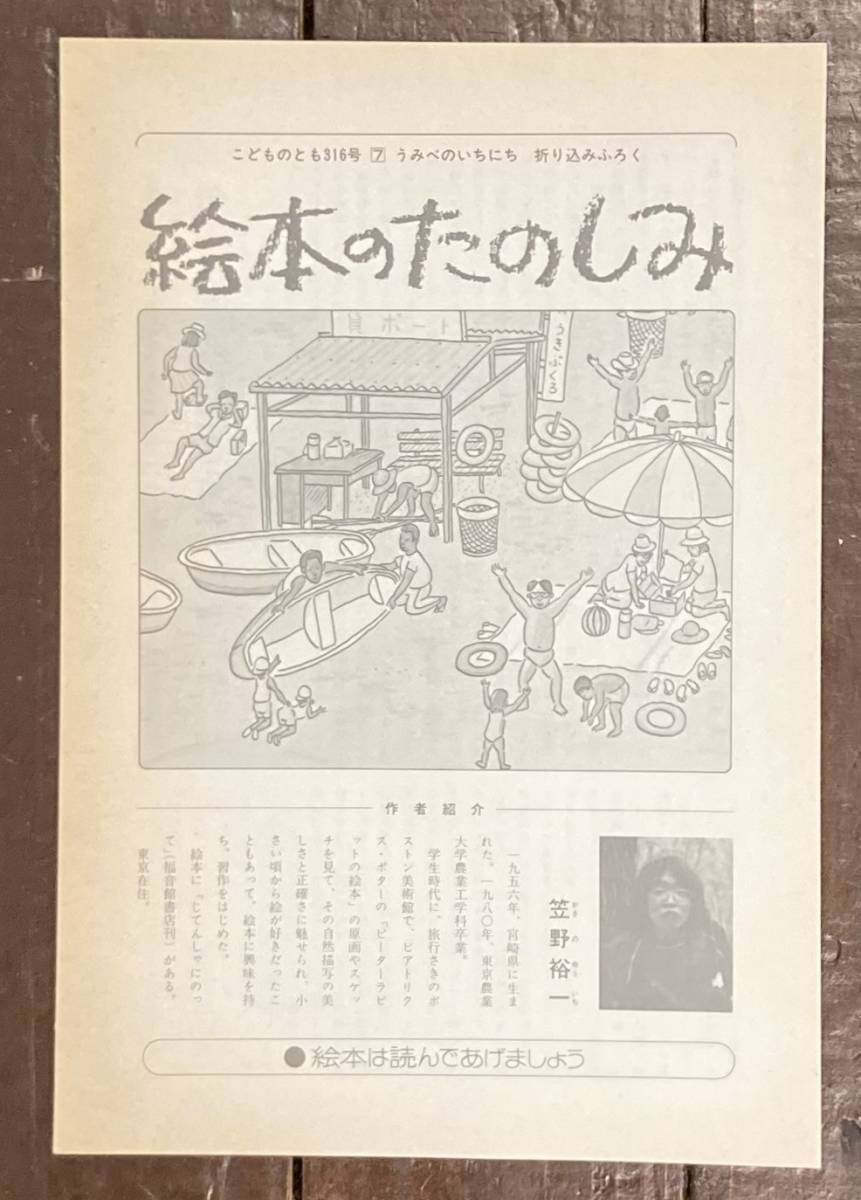 こどものとも316号 7 うみべのいちにち 折り込みふろく
絵本のたのしみ
貸ボート
うきぶくろ
作者紹介
笠野裕一
かさのゆういち
一九五六年、宮崎県に生ま
れた。一九八〇年、東京農業
大学農業工学科卒業。
学生時代に、旅行さきのボ
ストン美術館で、ビアトリク
ス・ポターの「ピーターラビ
ットの絵本」の原画やスケッ
チを見て、その自然描写の美
しさと正確さに魅せられ、小
さい頃から絵が好きだったこ
ともあって、絵本に興味を持
ち、習作をはじめた。
絵本に『じてんしゃにのっ
て』(福音館書店刊)がある。
東京在住。
●絵本は読んであげましょう